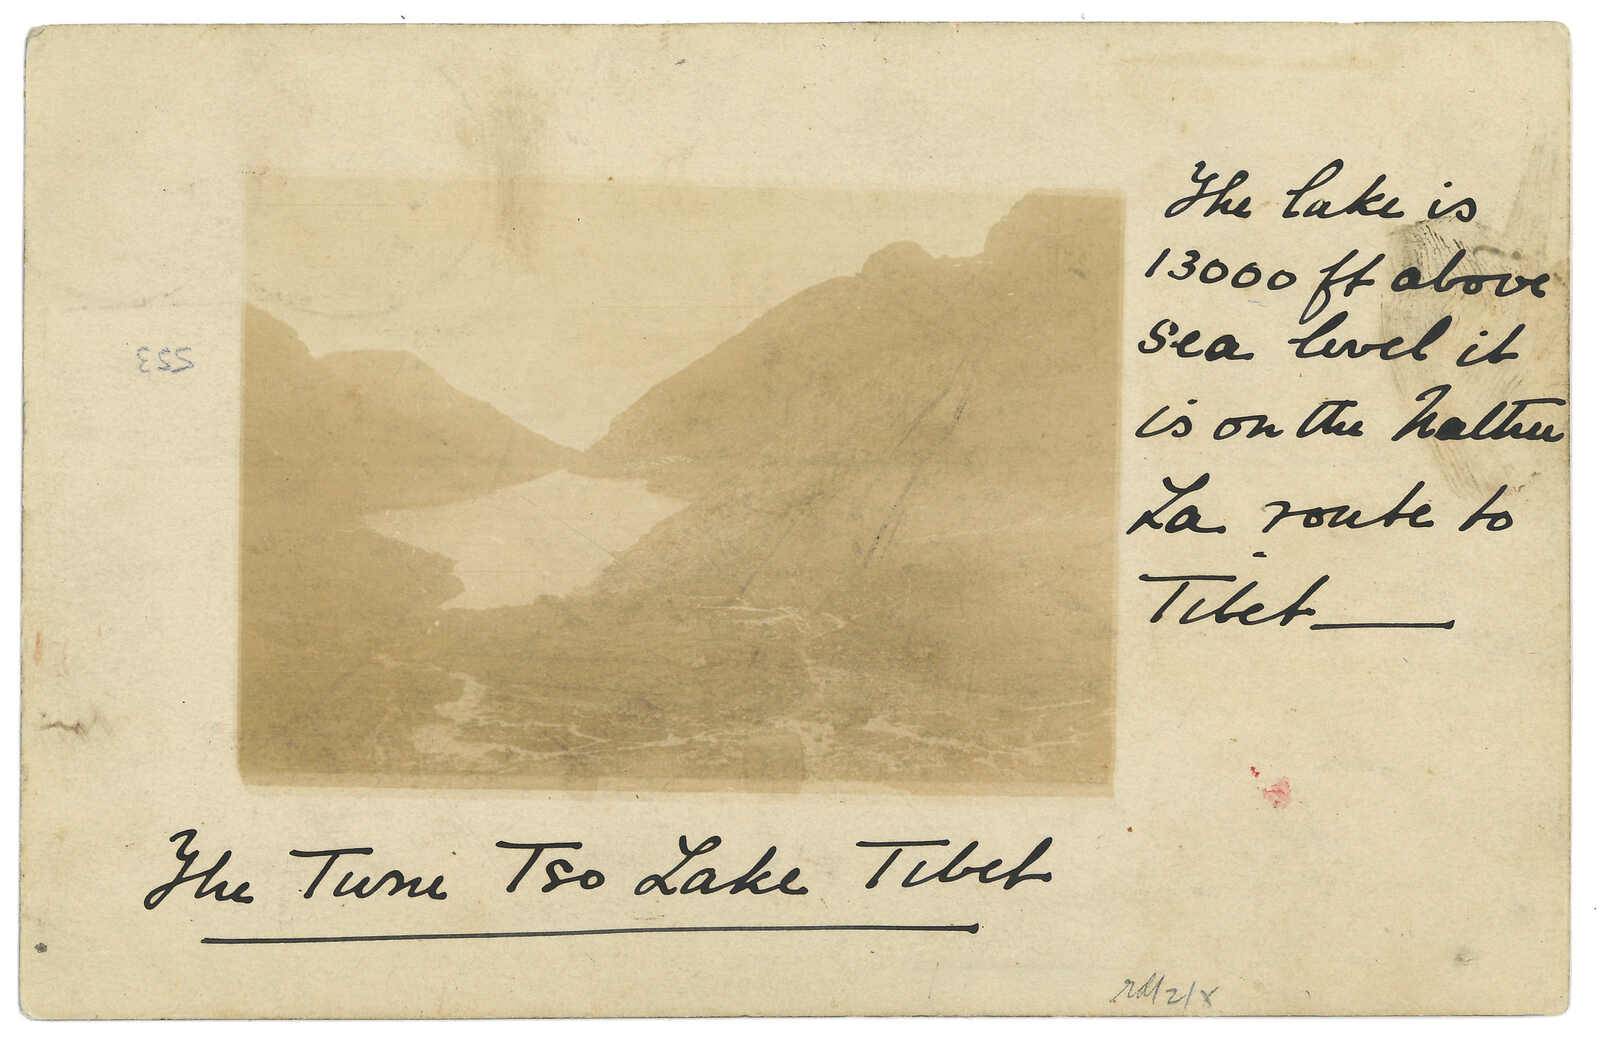 The lake is
13000 ft above
sea level it
is on the Nathu
La route to
Tibet
The Tso Lake Tibet
553